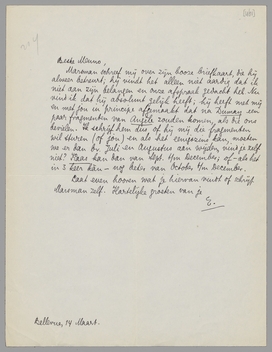 Beste Menno,
Marsman schreef mij over zijn booze briefkaart, die hij
alweer betreurt; hij vindt het alleen niet aardig dat ik
niet aan zijn belangen in onze afspraak gedacht heb. Nu
vind ik dat hij absoluut gelijk heeft; hij heeft met mij
en met jou in principe afgemaakt dat na Dumay een
paar fragmenten van Angèle zouden komen, als die ons
bevielen. Ik schrijf hem dus of hij mij die fragmenten
wil sturen (of jou) en als het eenigszins kan, moeten
we er dan bv. Juli en Augustus aan wijden, vind je zelf
niet? Vaas kan dan van Sept. t/m December; of - als het
in 3 keer kan - nog beter van October t/m December.
Laat even hooren wat je hiervan vindt of schrijf
Marsman zelf. Hartelijke groeten van je
E.
Bellevue, 14 Maart.